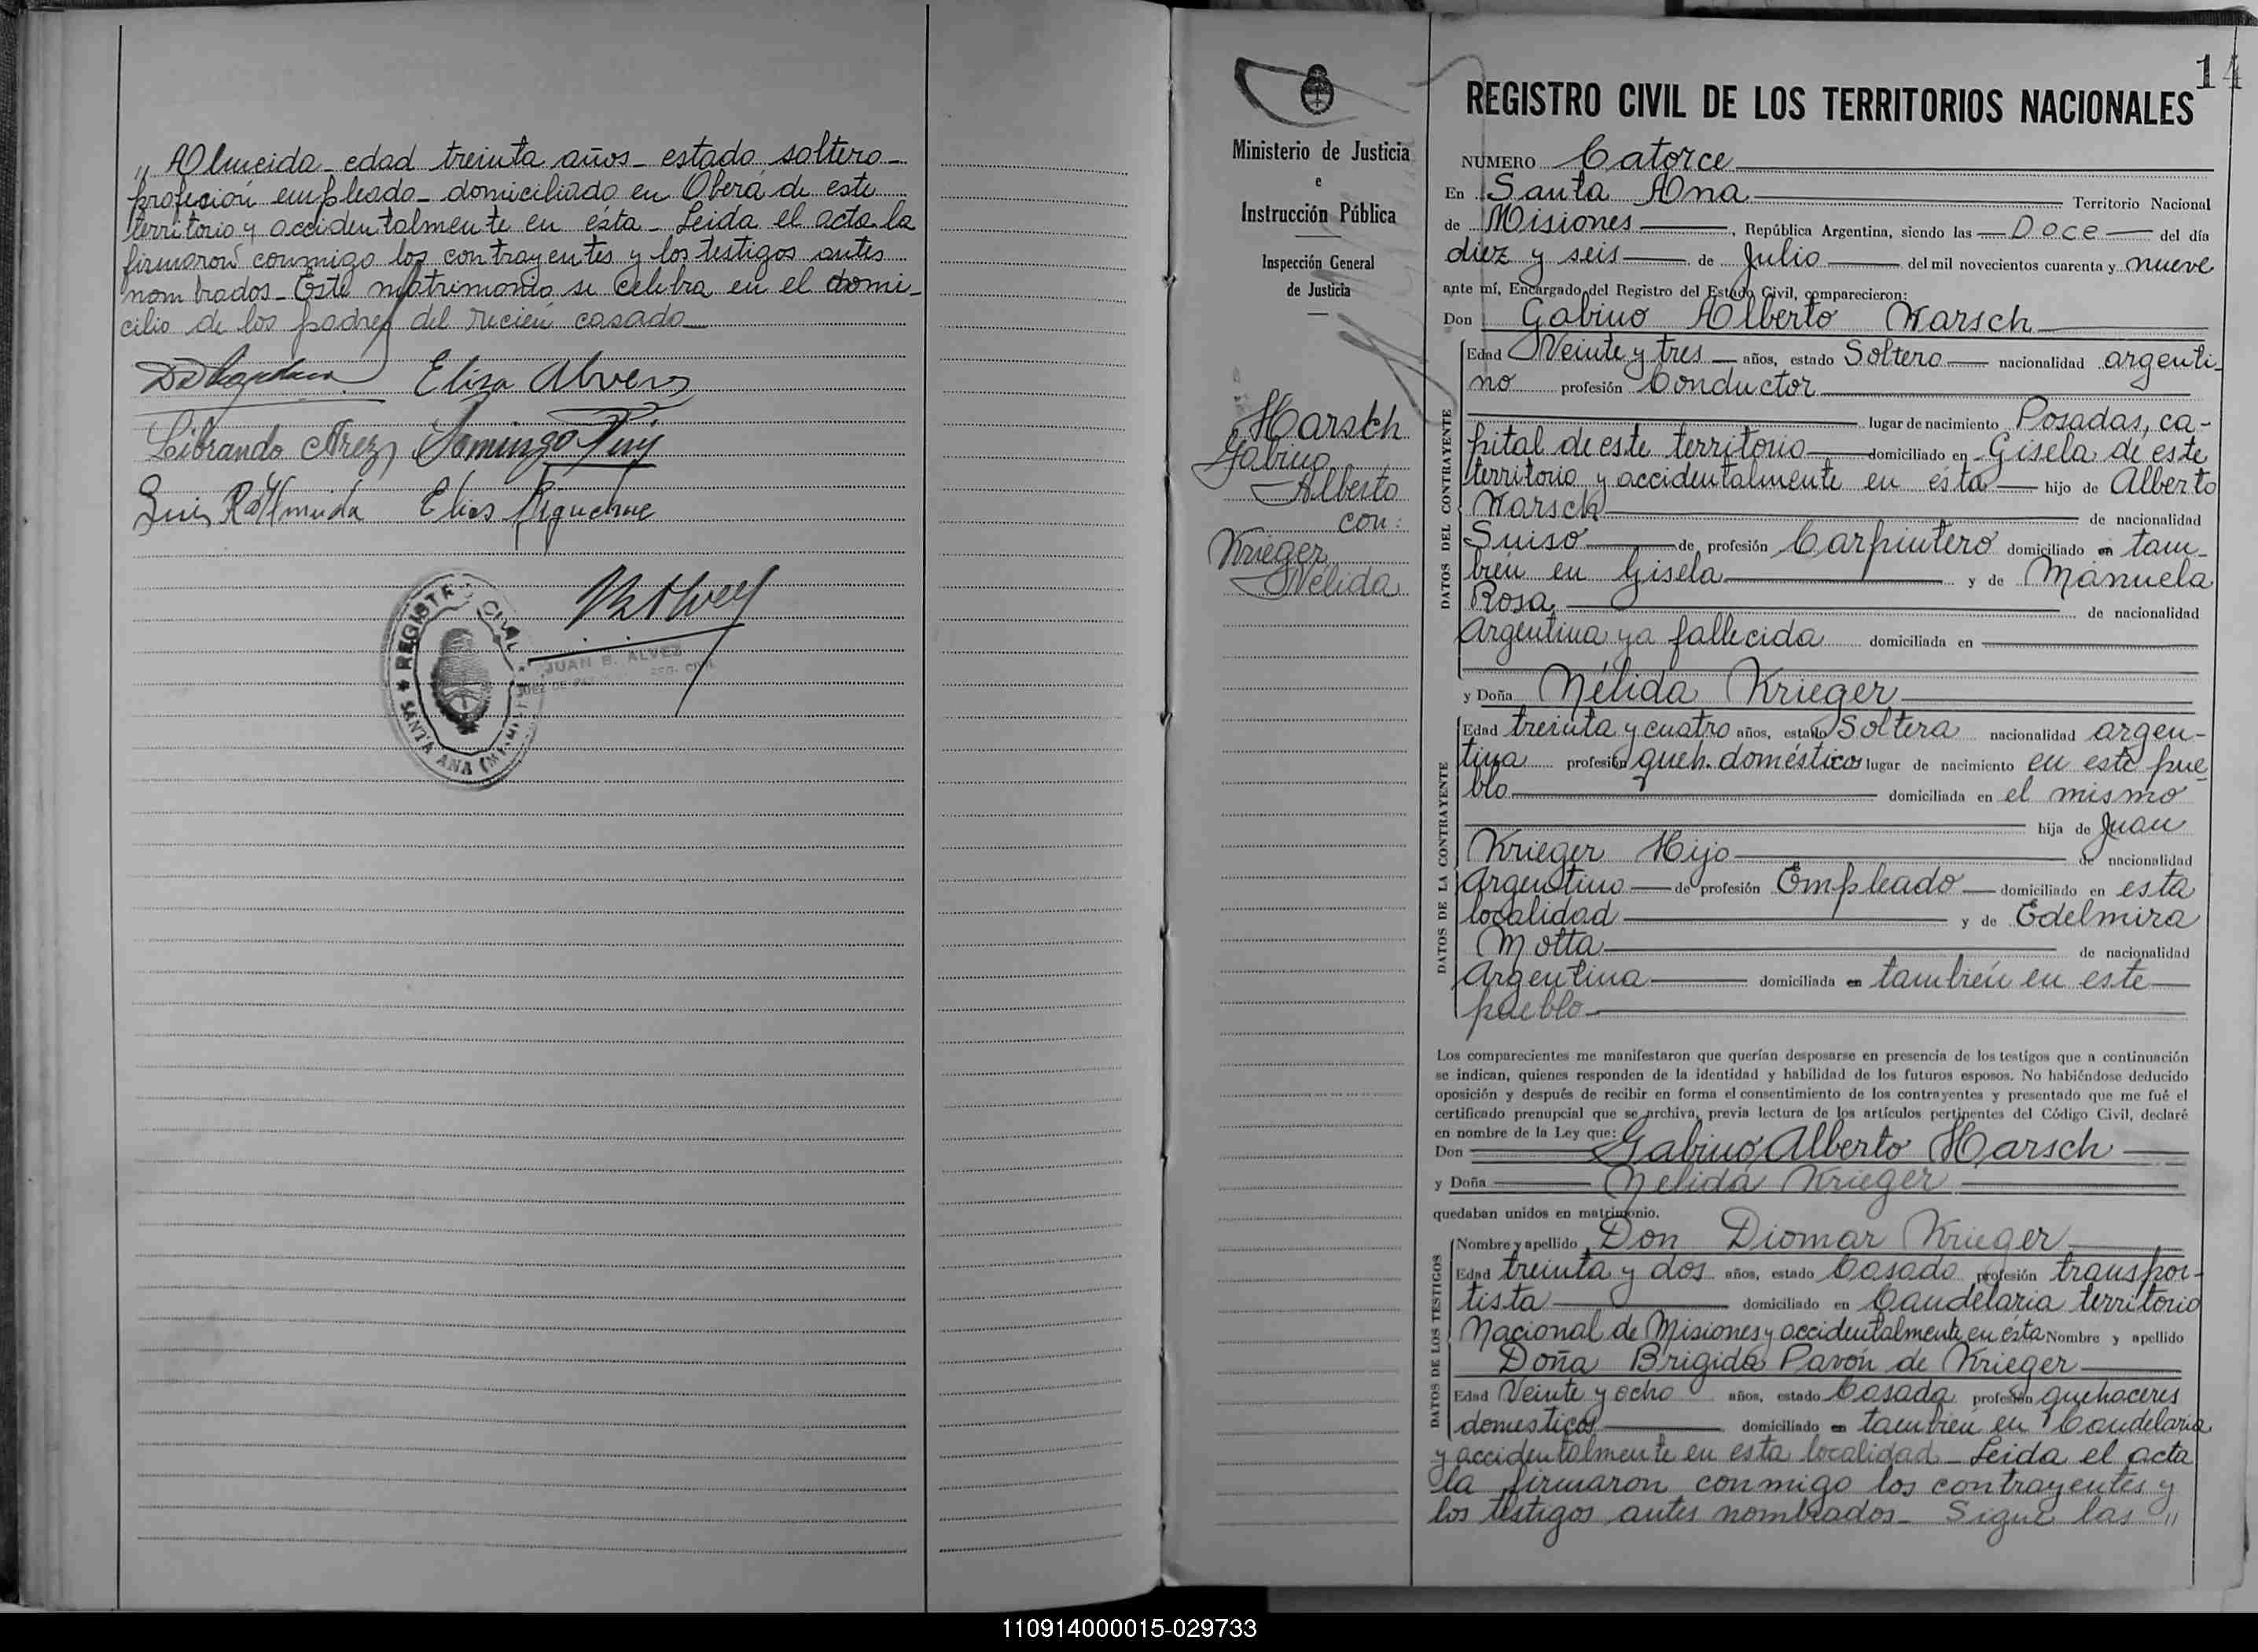 „ Almeida_ edad treinta años_ estado soltero_
profesión empleado_ domiciliado en Oberá de este
territorio y accidentalmente en ésta_ Leida el acta la
firmaron conmigo los contrayentes y los testigos antes
nombrados_ Este matrimonio se celebra en el domi-
cilio de los padres del recién casado
Eliza Alvers
Librando Domingo
Luis R. Almeida Elias
REGISTRO CIVIL
SANTA ANA
JUAN B. ALVEZ
JUEZ DE PAZ REG. CIVIL
14
Ministerio de Justicia
e
Instrucción Pública
Inspección General
de Justicia
Harsch
Gabino
Alberto
con:
Krieger
Nélida
REGISTRO CIVIL DE LOS TERRITORIOS NACIONALES
NUMERO Catorce
En Santa Ana Territorio Nacional
de Misiones, República Argentina, siendo las Doce del día
diez y seis de Julio del mil novecientos cuarenta y nueve
ante mí, Encargado del Registro del Estado Civil, comparecieron:
Don Gabino Alberto Harsch
DATOS DEL CONTRAYENTE
Edad Veinte y tres años, estado Soltero nacionalidad argenti-
no profesión Conductor
lugar de nacimiento Posadas, ca-
pital de este territorio domiciliado en Gisela de este
territorio y accidentalmente en ésta hijo de Alberto
Harsch de nacionalidad
Suiso de profesión Carpintero domiciliado en tam-
bién en Gisela y de Manuela
Rosa de nacionalidad
Argentina ya fallecida domiciliada en
y Doña Nélida Krieger
DATOS DE LA CONTRAYENTE
Edad treinta y cuatro años, estado Soltera nacionalidad argen-
tina profesión queh. domésticos lugar de nacimiento en este pue-
blo domiciliada en el mismo
hija de Juan
Krieger Hijo de nacionalidad
Argentino de profesión Empleado domiciliado en esta
localidad y de Edelmira
Motta de nacionalidad
Argentina domiciliada en también en este
pueblo
Los comparecientes me manifestaron que querían desposarse en presencia de los testigos que a continuación
se indican, quienes responden de la identidad y habilidad de los futuros esposos. No habiéndose deducido
oposición y después de recibir en forma el consentimiento de los contrayentes y presentado que me fué el
certificado prenupcial que se archiva, previa lectura de los artículos pertinentes del Código Civil, declaré
en nombre de la Ley que:
Don Gabino Alberto Harsch
y Doña Nélida Krieger
quedaban unidos en matrimonio.
DATOS DE LOS TESTIGOS
Nombre y apellido Don Diomar Krieger
Edad treinta y dos años, estado Casado profesión transpor-
tista domiciliado en Candelaria territorio
Nacional de Misiones y accidentalmente en ésta Nombre y apellido
Doña Brigida Pavón de Krieger
Edad Veinte y ocho años, estado Casada profesión quehaceres
domesticos domiciliado en también en Candelaria
y accidentalmente en esta localidad_ Leida el acta
la firmaron conmigo los contrayentes y
los testigos antes nombrados_ Sigue las „
110914000015-029733